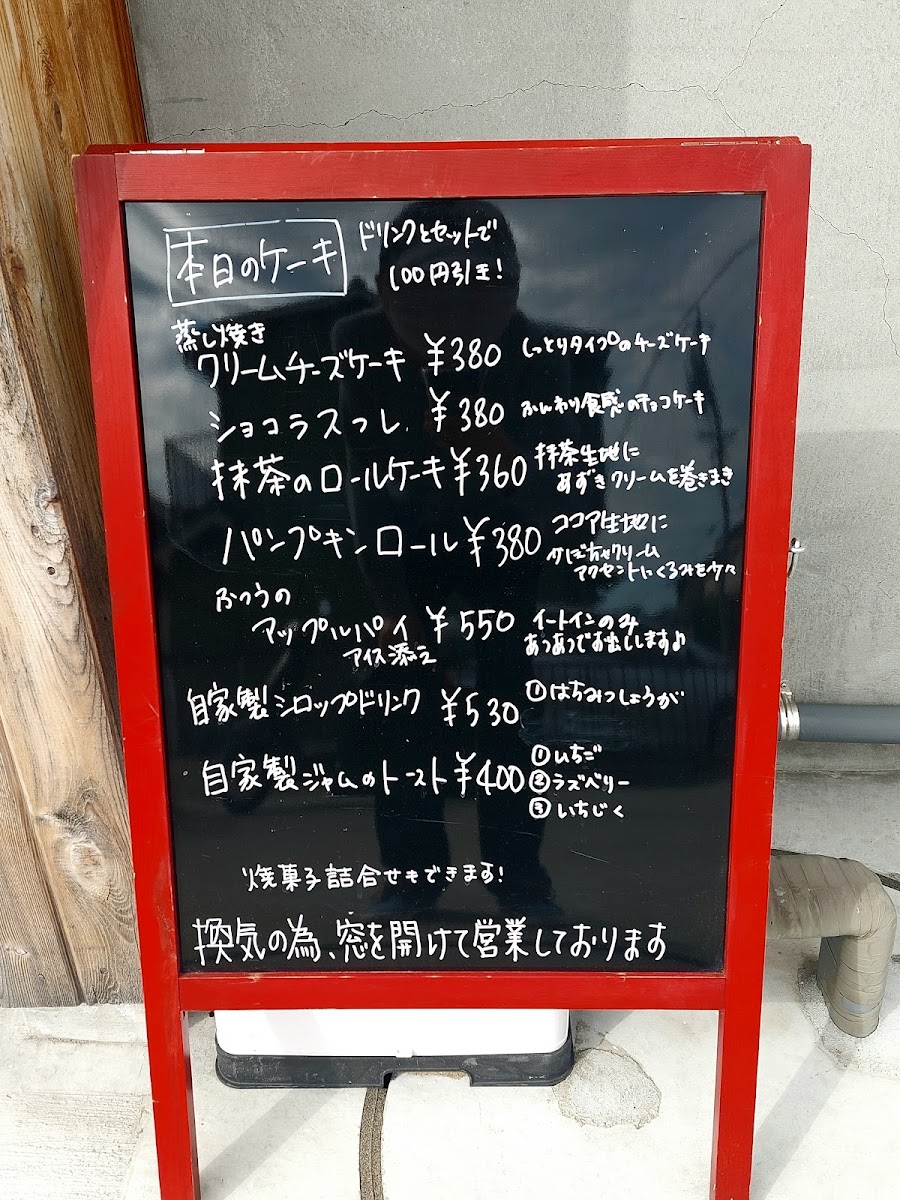 本日のケーキ
ドリンクとセットで
100円引き!
蒸し焼き
クリームチーズケーキ ¥380 しっとりタイプのチーズケーキ
ショコラスフレ ¥380 ふんわり食感のチョコケーキ
抹茶のロールケーキ ¥360 抹茶生地に
あずきクリームを巻きまき
パンプキンロール ¥380 ココア生地に
かぼちゃクリーム
アクセントにくるみを少々
ふつうの
アップルパイ ¥550 イートインのみ
アイス添え あつあつでお出しします♪
自家製シロップドリンク ¥530 ①はちみつしょうが
自家製ジャムのトースト ¥400 ①いちご
②ラズベリー
③いちじく
焼菓子詰合せもできます!
換気の為、窓を開けて営業しております